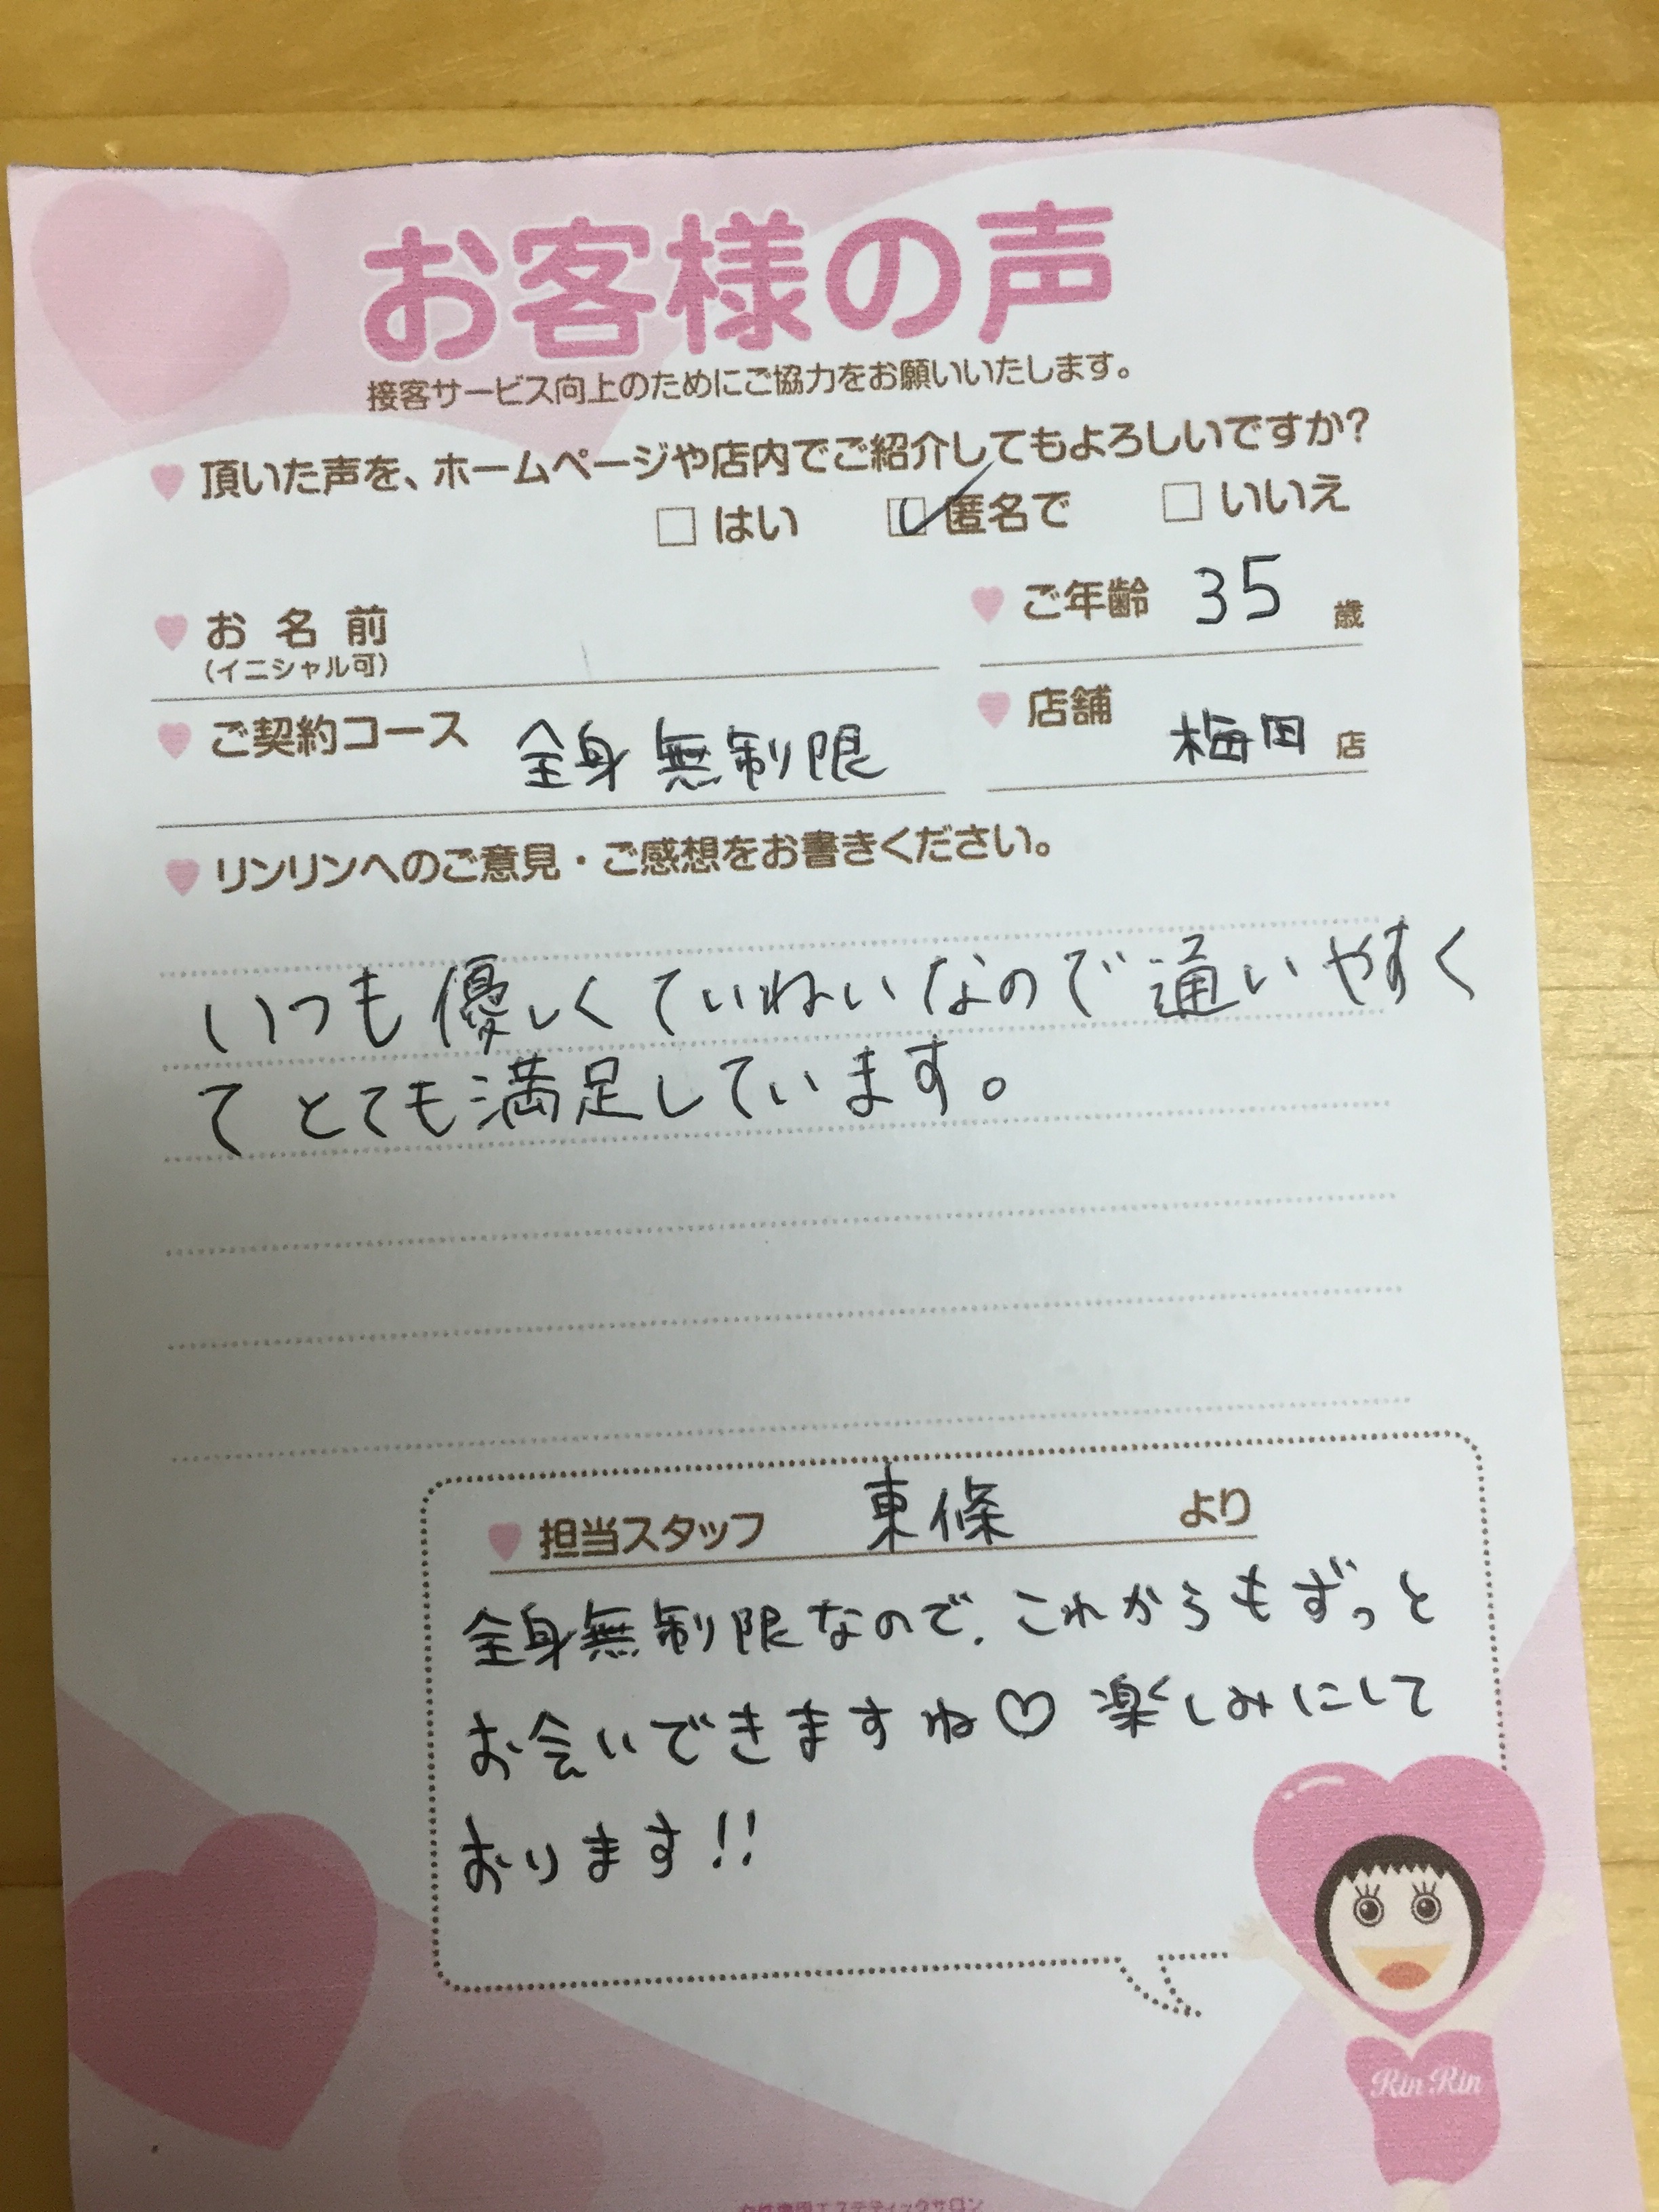 お客様の声
接客サービス向上のためにご協力をお願いいたします。
頂いた声を、ホームページや店内でご紹介してもよろしいですか?
はい 匿名で いいえ
お名前 ご年齢 35 歳
(イニシャル可)
ご契約コース 全身無制限 店舗 梅田 店
リンリンへのご意見・ご感想をお書きください。
いつも優しくていねいなので通いやすく
て とても満足しています。
担当スタッフ 東條 より
全身無制限なので、これからもずっと
お会いできますね♡ 楽しみにして
おります!!
Rin Rin